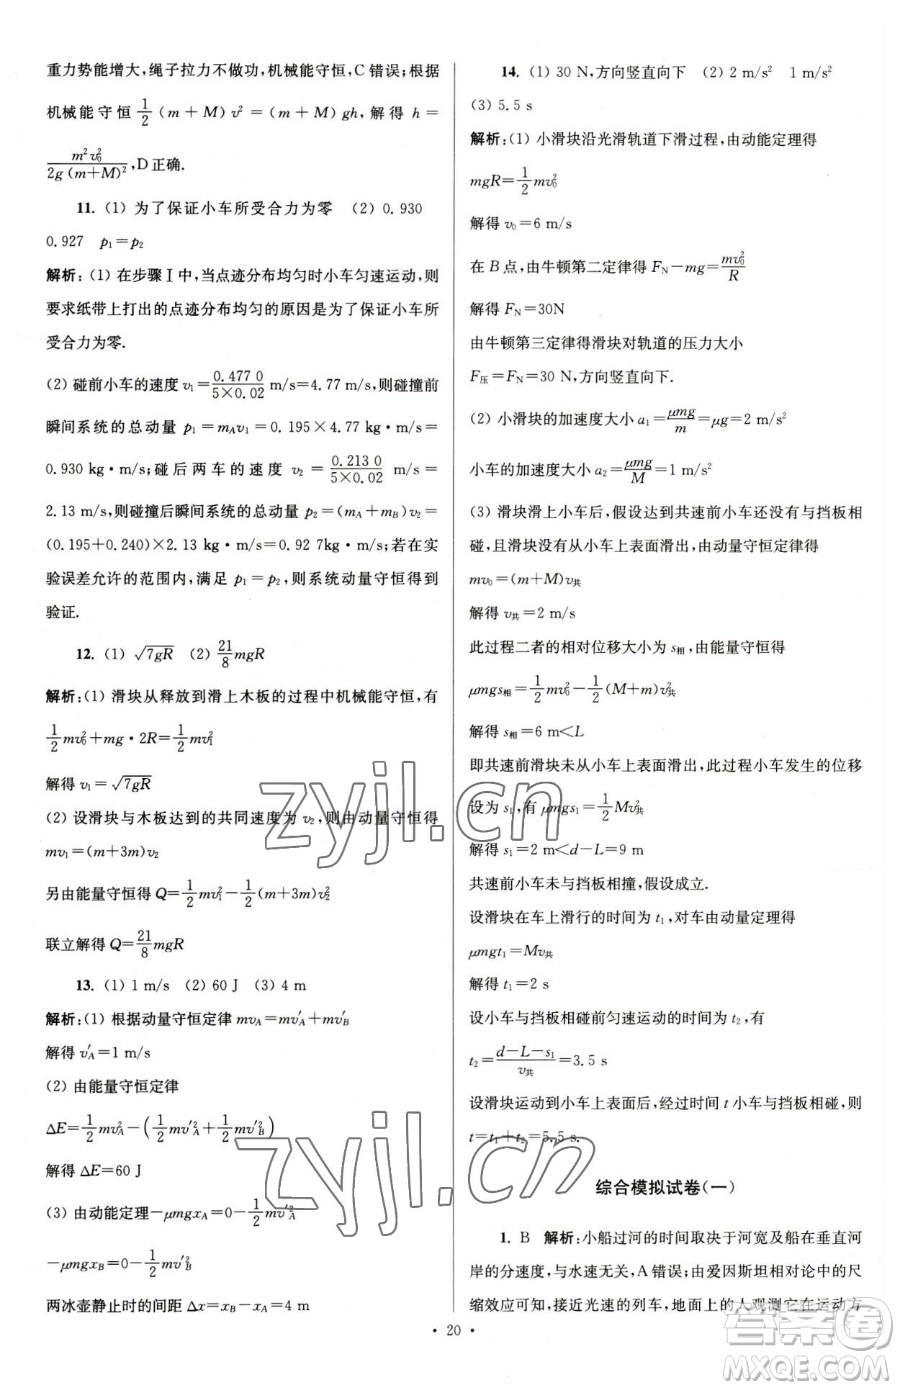 重力势能增大,绳子拉力不做功,机械能守恒,C错误;根据
机械能守恒 \frac{1}{2}(m+M)v²=(m+M)gh,解得 h=
\frac{m²v₀²}{2g(m+M)²},D正确.
11. (1) 为了保证小车所受合力为零 (2) 0.930
0.927 p₁=p₂
解析:(1) 在步骤Ⅰ中,当点迹分布均匀时小车匀速运动,则
要求纸带上打出的点迹分布均匀的原因是为了保证小车所
受合力为零.
(2) 碰前小车的速度 v₁=\frac{0.477 0}{5×0.02} m/s=4.77 m/s,则碰撞前
瞬间系统的总动量 p₁=m_Av₁=0.195×4.77 kg·m/s=
0.930 kg·m/s;碰后两车的速度 v₂=\frac{0.213 0}{5×0.02} m/s=
2.13 m/s,则碰撞后瞬间系统的总动量 p₂=(m_A+m_B)v₂=
(0.195+0.240)×2.13 kg·m/s=0.92 7kg·m/s;若在实
验误差允许的范围内,满足 p₁=p₂,则系统动量守恒得到
验证.
12. (1) \sqrt{7gR} (2) \frac{21}{8}mgR
解析:(1) 滑块从释放到滑上木板的过程中机械能守恒,有
\frac{1}{2}mv₀²+mg·2R=\frac{1}{2}mv₁²
解得 v₁=\sqrt{7gR}
(2) 设滑块与木板达到的共同速度为 v₂,则由动量守恒得
mv₁=(m+3m)v₂
另由能量守恒得 Q=\frac{1}{2}mv₁²-\frac{1}{2}(m+3m)v₂²
联立解得 Q=\frac{21}{8}mgR
13. (1) 1 m/s (2) 60 J (3) 4 m
解析:(1) 根据动量守恒定律 mv_A=mv′_A+mv′_B
解得 v′_A=1 m/s
(2) 由能量守恒定律
ΔE=\frac{1}{2}mv_A²-(\frac{1}{2}mv′_A²+\frac{1}{2}mv′_B²)
解得 ΔE=60 J
(3) 由动能定理-μmgx_A=0-\frac{1}{2}mv′_A²
-μmgx_B=0-\frac{1}{2}mv′_B²
两冰壶静止时的间距 Δx=x_B-x_A=4 m
14. (1) 30 N,方向竖直向下 (2) 2 m/s² 1 m/s²
(3) 5.5 s
解析:(1) 小滑块沿光滑轨道下滑过程,由动能定理得
mgR=\frac{1}{2}mv₀²
解得 v₀=6 m/s
在 B 点,由牛顿第二定律得 F_N-mg=\frac{mv₀²}{R}
解得 F_N=30N
由牛顿第三定律得滑块对轨道的压力大小
F_压=F_N=30 N,方向竖直向下.
(2) 小滑块的加速度大小 a₁=\frac{μmg}{m}=μg=2 m/s²
小车的加速度大小 a₂=\frac{μmg}{M}=1 m/s²
(3) 滑块滑上小车后,假设达到共速前小车还没有与挡板相
碰,且滑块没有从小车上表面滑出,由动量守恒定律得
mv₀=(m+M)v_共
解得 v_共=2 m/s
此过程二者的相对位移大小为 s_相,由能量守恒得
μmgs_相=\frac{1}{2}mv₀²-\frac{1}{2}(M+m)v_共²
解得 s_相=6 m<L
即共速前滑块未从小车上表面滑出,此过程小车发生的位移
设为 s₁,有 μmgs₁=\frac{1}{2}Mv_共²
解得 s₁=2 m<d-L=9 m
共速前小车未与挡板相撞,假设成立.
设滑块在车上滑行的时间为 t₁,对车由动量定理得
μmgt₁=Mv_共
解得 t₁=2 s
设小车与挡板相碰前匀速运动的时间为 t₂,有
t₂=\frac{d-L-s₁}{v_共}=3.5 s
设滑块运动到小车上表面后,经过时间 t 小车与挡板相碰,则
t=t₁+t₂=5.5 s.
综合模拟试卷(一)
1. B 解析:小船过河的时间取决于河宽及船在垂直河
岸的分速度,与水速无关,A错误;由爱因斯坦相对论中的尺
缩效应可知,接近光速的列车,地面上的人观测它在运动方
· 20 ·
zyjl.cn
zyjl.cn
答案圈
MXQE.COM